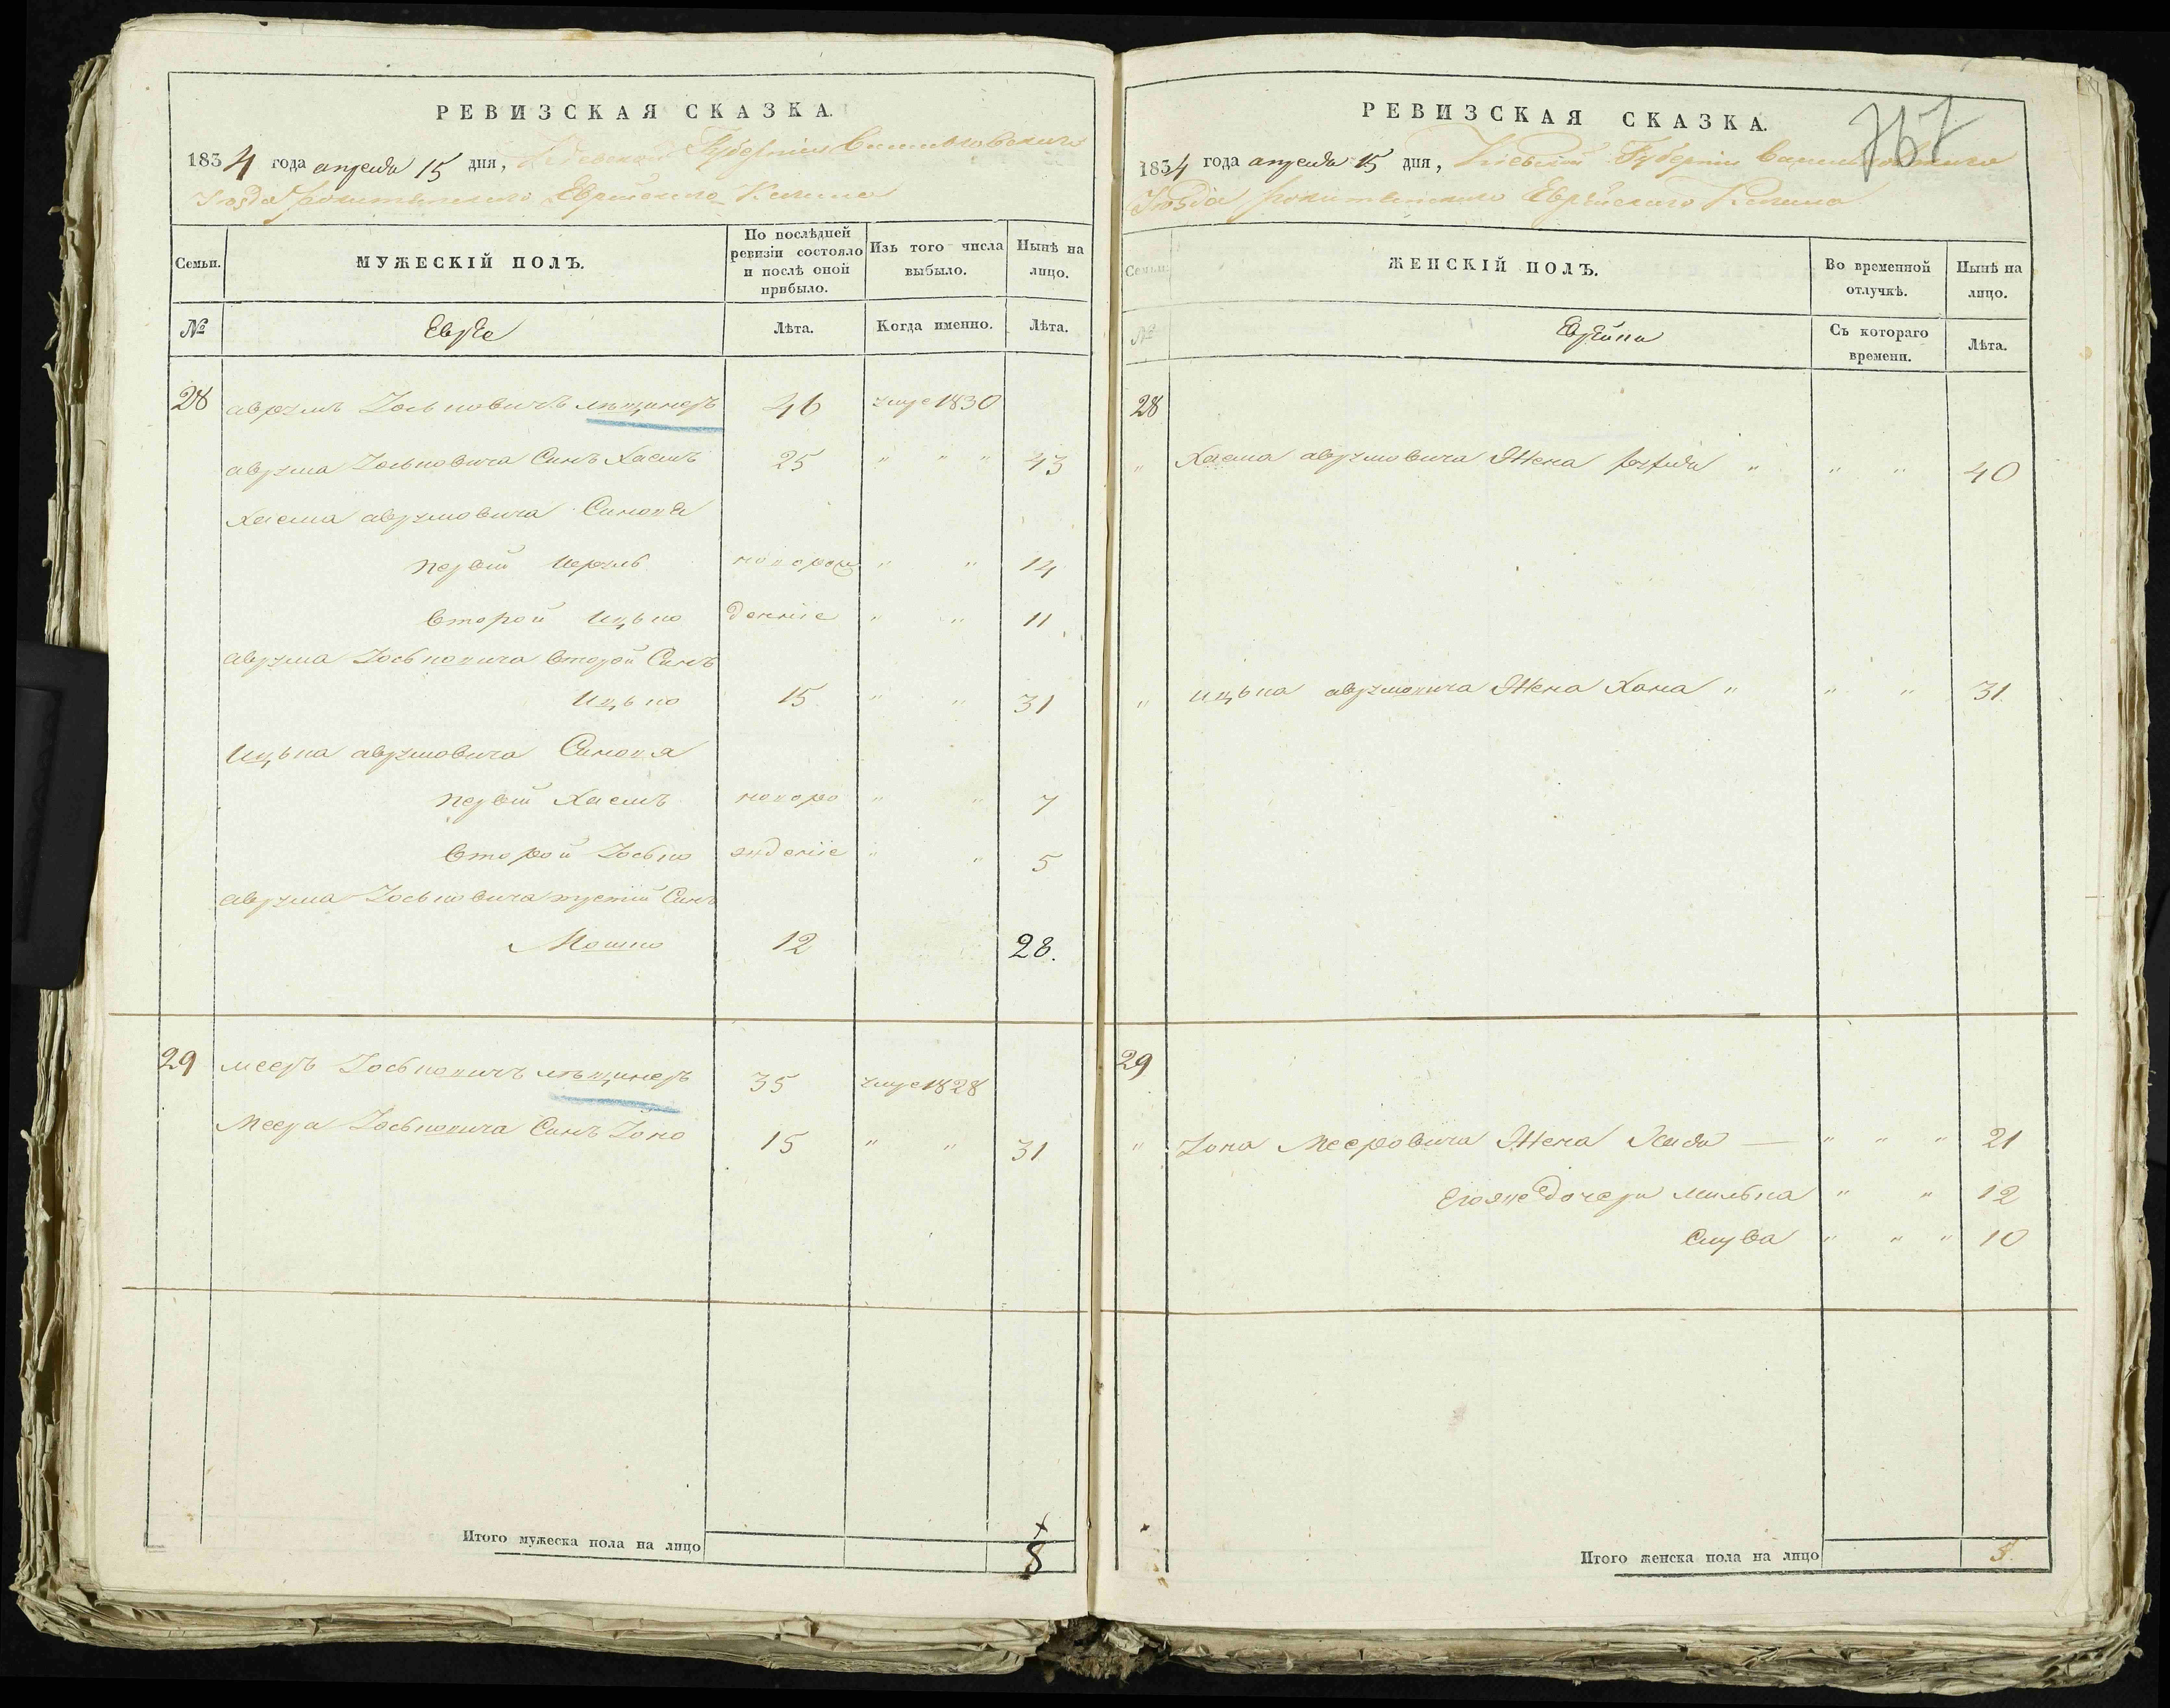 РЕВИЗСКАЯ СКАЗКА.
1834 года апреля 15 дня, Кіевской Губерніи Васильковскаго
Уѣзда Рокитянского Еврейского Кагала
Семьи.
МУЖЕСКІЙ ПОЛЪ.
По послѣдней ревизіи состояло и послѣ оной прибыло.
Изъ того числа выбыло.
Нынѣ на лицо.
№
Евреи
Лѣта.
Когда именно.
Лѣта.
28 Аврумъ Іоськовичъ 46 умре 1830
Аврума Іоськовича Синъ Хаемъ 25 " " " 43
Хаема Аврумовича Синовя
первій новорож " " 14
Второй Ицько денніе " " 11
Аврума Іоськовича Второй Синъ
Ицько 15 " " 31
Ицька Аврумовича Синовя
первій Хаемъ новоро " " 7
Второй Іосько жденіе " " 5
Аврума Іоськовича третій Синъ
Мошко 12 28.
29 Мееръ Іоськовичъ 35 умре 1828
Меера Іоськовича Синъ Іоно 15 " " 31
Итого мужеска пола на лицо 8
РЕВИЗСКАЯ СКАЗКА.
767
1834 года апреля 15 дня, Кіевской Губерніи Васильковского
Уѣзда Рокитянского Еврейского Кагала
Семьи.
ЖЕНСКІЙ ПОЛЪ.
Во временной отлучкѣ.
Нынѣ на лицо.
№
Еврейки
Съ котораго времени.
Лѣта.
28
" Хаема Аврумовича Жена " " " 40
" Ицька Аврумовича Жена Хана " " " 31
29
" Іона Мееровича Жена — " " " 21
Егоже дочери Милька " " 12
" " " 10
Итого женска пола на лицо 5.